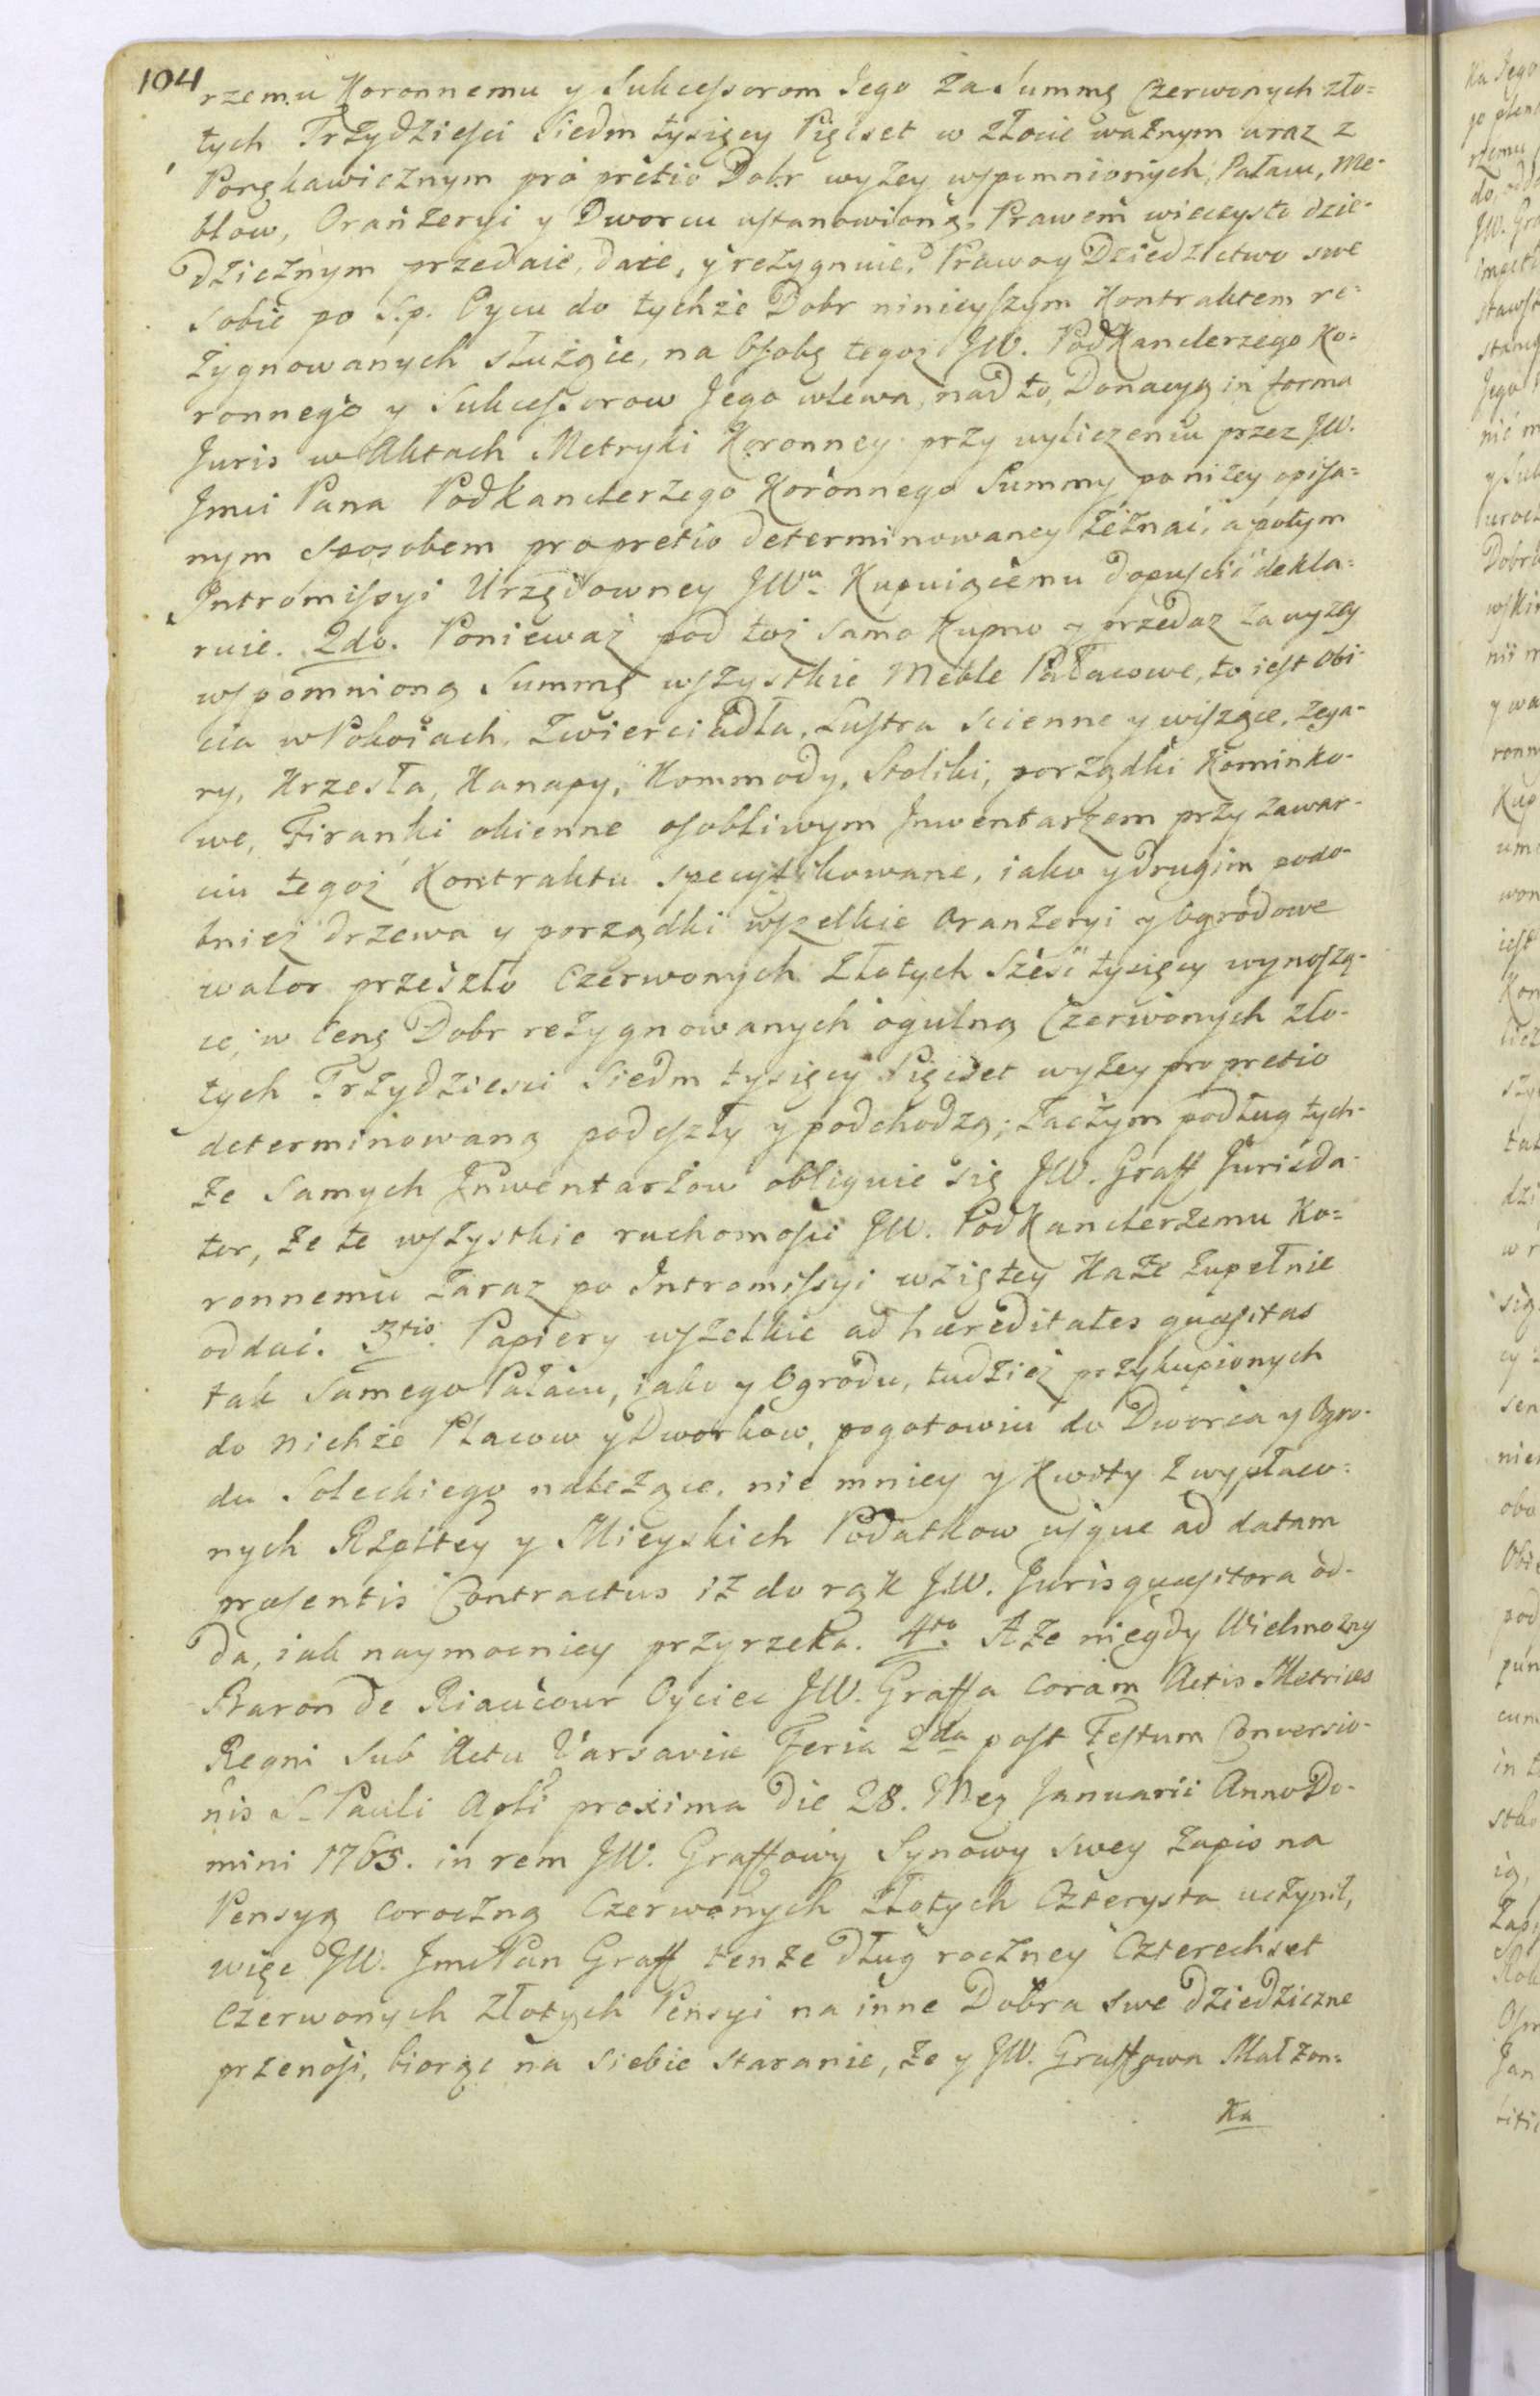 104
rzemu Koronnemu y Sukcessorom Jego za Summę Czerwonych zło=
tych Trzydzieści Siedm tysięcy Pięćset w złocie ważnym wraz z
Porękawicznym pro pretio Dobr wyżey wspomnionych, Pałacu, Me=
blow, Oranżeryi y Dworcu ustanowioną, Prawem wieczysto dzie=
dzicznym przedaie, daie, y rezygnuie, Prawo y Dziedzictwo swe
sobie po S.p. Oycu do tychże Dobr ninieyszym Kontraktem re=
zygnowanych służące, na Osobę tegoż JW. PodKanclerzego Ko=
ronnego y Sukcessorow Jego wlewa, nad to, Donacyą in forma
Juris w Aktach Metryki Koronney przy wyliczeniu przez JW.
Jmci Pana Podkanclerzego Koronnego Summy poniżey opisa=
nym sposobem pro pretio determinowaney zeznać, a potym
Intromissyi Urzędowney JWu. Kupuiącemu dopuścić dekla=
ruie. 2do. Ponieważ pod toż samo Kupno y przedaż za wyżey
wspomnioną Summę wszystkie Meble Pałacowe, to iest Obi=
cia w Pokoiach, Zwierciadła, Lustra scienne y wiszące, Zega=
ry, Krzesła, Kanapy, Kommody, Stoliki, porządki Kominko=
we, Firanki okienne osobliwym Inwentarzem przy zawar=
ciu tegoż Kontraktu specyfikowane, iako y drugim podo=
bnież drzewa y porządki wszelkie Oranżeryi y Ogrodowe
walor przeszło Czerwonych Złotych Sześć tysięcy wynoszą=
ce, w cenę Dobr rezygnowanych ogulną Czerwonych zło=
tych Trzydzieści Siedm tysięcy Pięćset wyżey pro pretio
determinowaną podeszły y podchodzą; zaczym podług tych=
że samych Inwentarzow obliguie się JW. Graff Jurisda=
tor, że te wszystkie ruchomości JW. PodKanclerzemu Ko=
ronnemu zaraz po Intromissyi wziętey Każe zupełnie
oddać. 3tio. Papiery wszelkie ad hæreditates quæsitas
tak Samego Pałacu, iako y Ogrodu, tudzież przykupionych
do nichże Placow y Dworkow, pogotowiu do Dworca y Ogro=
du Soleckiego należące, nie mniey y Kwity z wypłaco=
nych Rzpltey y Mieyskich Podatkow usque ad datam
præsentis Contractus iż do rąk JW. Jurisquæsitora od=
da, iak naymocniey przyrzeka. 4to. A że niegdy Wielmożny
Baron de Riaucour Oyciec JW. Graffa coram Actis Metrices
Regni sub Actu Varsaviæ Feria 2da post Festum Conversio=
nis S. Pauli Apli proxima die 28. Mez Januarii Anno Do=
mini 1765. in rem JW. Graffowy Synowy swey zapis na
Pensyą coroczną Czerwonych Złotych Czterysta uczynił,
więc JW. Jmć Pan Graff tenże dług roczney Czterechset
Czerwonych Złotych Pensyi na inne Dobra swe dziedziczne
przenosi, biorąc na siebie staranie, że y JW. Graffowa Małżon=
Ka